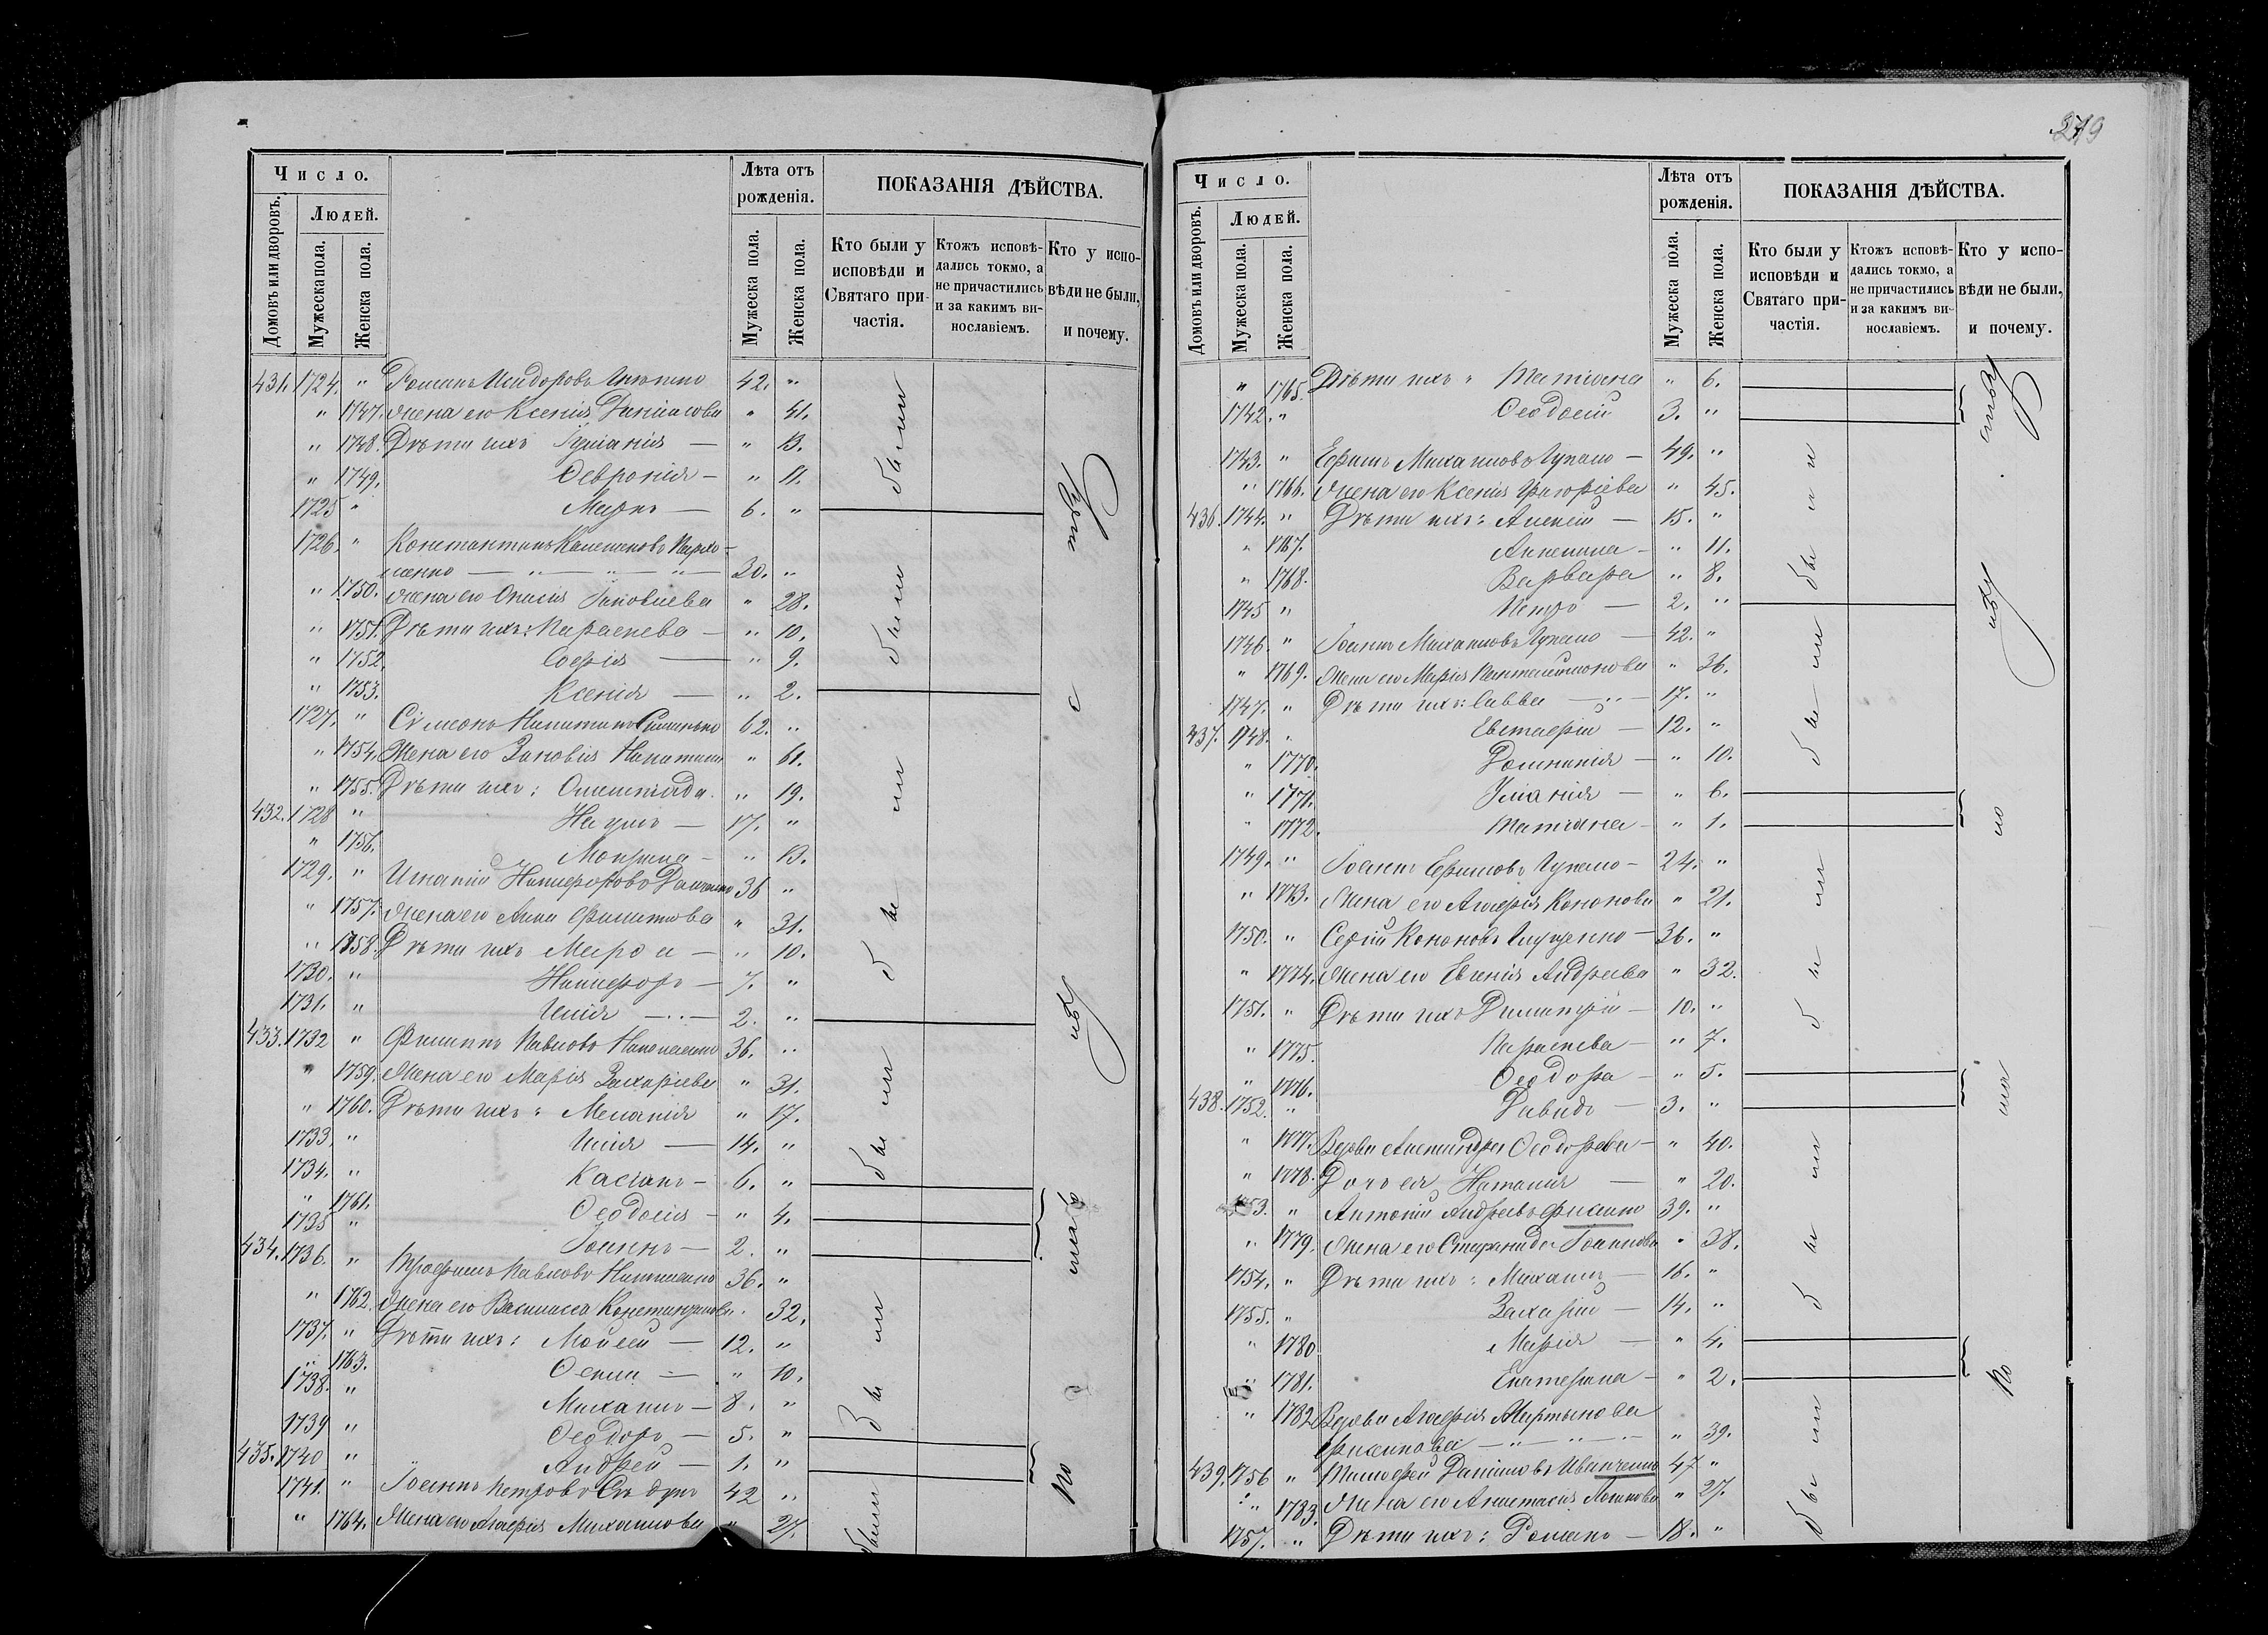 Число.
Лѣта отъ рожденія.
ПОКАЗАНІЯ ДѢЙСТВА.
Домовъ или дворовъ.
Людей.
Мужеска пола.
Женска пола.
Мужеска пола.
Женска пола.
Кто были у исповѣди и Святаго причастія.
Ктожъ исповѣдались токмо, а не причастились и за какимъ винославіемъ.
Кто у исповѣди не были, и почему.
431. 1724. " Романъ Исидоровъ 42. "
" 1747. Жена его Ксенія Даніилова " 41.
" 1748. Дѣти ихъ Іуліанія — " 13.
" 1749. Февронія — " 11.
1725 " Маркъ — 6. "
1726. " Константинъ
— " — " — " — 30. "
" 1750. Жена его Яковлева " 28.
" 1751. Дѣти ихъ: Параскева — " 10.
" 1752. Софія — " 9.
" 1753. Ксенія — " 2.
1727. " Сѵмеонъ Никитинъ 62. "
" 1754. Жена его Зиновія Никитина " 61.
" 1755. Дѣти ихъ: Олимпіада. " 19.
432. 1728 " Наумъ — 17. "
" 1756. Макрина — " 13.
1729. " Игнатій Никифоровъ 36 "
" 1757. Жена его Анна Филиппова " 31.
" 1758. Дѣти ихъ Марѳа — " 10.
1730. " Никифоръ — 7. "
1731. " Илія — 2. "
433. 1732 " Филиппъ Павловъ 36. "
" 1759. Жена его Марія Захаріева " 31.
" 1760. Дѣти ихъ: Меланія " 17.
1733. " Илія — 14. "
1734. " Касіанъ — 6. "
" 1761. Ѳеодосія — " 4.
1735 " Іоаннъ — 2. "
434. 1736. " Трофимъ Павловъ 36. "
" 1762. Жена его Василисса Константинова " 32.
1737. " Дѣти ихъ: Мойсей — 12. "
" 1763. Ѳекла — " 10.
1738. " Михаилъ — 8. "
1739 " Ѳеодоръ — 5. "
435. 1740 " Андрей — 1. "
1741. " Іоаннъ Петровъ 42 "
" 1764. Жена его Агафія Михаилова " 27.
были
были
были
были
были
были
279
Число.
Лѣта отъ рожденія.
ПОКАЗАНІЯ ДѢЙСТВА.
Домовъ или дворовъ.
Людей.
Мужеска пола.
Женска пола.
Мужеска пола.
Женска пола.
Кто были у исповѣди и Святаго причастія.
Ктожъ исповѣдались токмо, а не причастились и за какимъ винославіемъ.
Кто у исповѣди не были, и почему.
" 1765. Дѣти ихъ " Татіана " 6.
1742. " Ѳеодосій 3. "
1743. " Ефимъ Михаиловъ — 49. "
" 1766. Жена его Ксенія Григоріева " 45.
436. 1744. " Дѣти ихъ: Алексій — 15. "
" 1767. Акилина — " 11.
" 1768. Варвара " 8.
1745 " Петръ — 2. "
1746. " Іоаннъ Михаиловъ — 42. "
" 1769. Жена его Марія Пантелеимонова " 36.
1747. " Дѣти ихъ: Савва — 17. "
437. 1748. " Евстафій — 12. "
" 1770. Домникія — " 10.
" 1771. Уліанія — " 6.
" 1772. Татіана — " 1.
1749. " Іоаннъ Ефимовъ — 24. "
" 1773. Жена его Агафія Кононова " 21.
1750. " Сергій Кононовъ — 36. "
" 1774. Жена его Евгенія Андреева " 32.
1751. " Дѣти ихъ Димитрій — 10. "
" 1775. Параскева — " 7.
" 1776. Ѳеодора — " 5.
438. 1752. " Давидъ — 3. "
" 1777. Вдова Александра Ѳеодорова — " 40.
" 1778. Дочь ея Наталія — " 20.
1753. " Антоній Андреевъ 39. "
" 1779. Жена его Стефанида Іоаннова " 38.
1754. " Дѣти ихъ: Михаилъ — 16. "
1755. " Захарій — 14. "
" 1780 Марія — " 4.
" 1781. Екатерина — " 2.
" 1782 Вдова Агафія Мартынова
— " — " — " 39.
439. 1756 " Тимофей Даніиловъ Иванченко 47 "
" 1783. Жена его Анастасія " 27.
1757. " Дѣти ихъ: Романъ — 18. "
были
были
были
были
были